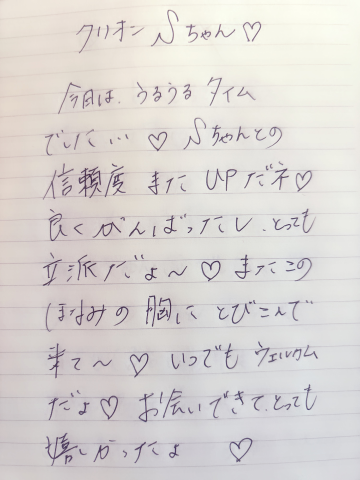 クリオン Sちゃん♡
今日は、うるうる タイム
でした… ♡ Sちゃんとの
信頼度 また UPだネ♡
良く がんばったし、とっても
立派だょ～♡ またこの
ほなみの 胸に とびこんで
来て～♡ いつでも ウェルカム
だょ♡ お会いできて、とっても
嬉しかったょ ♡